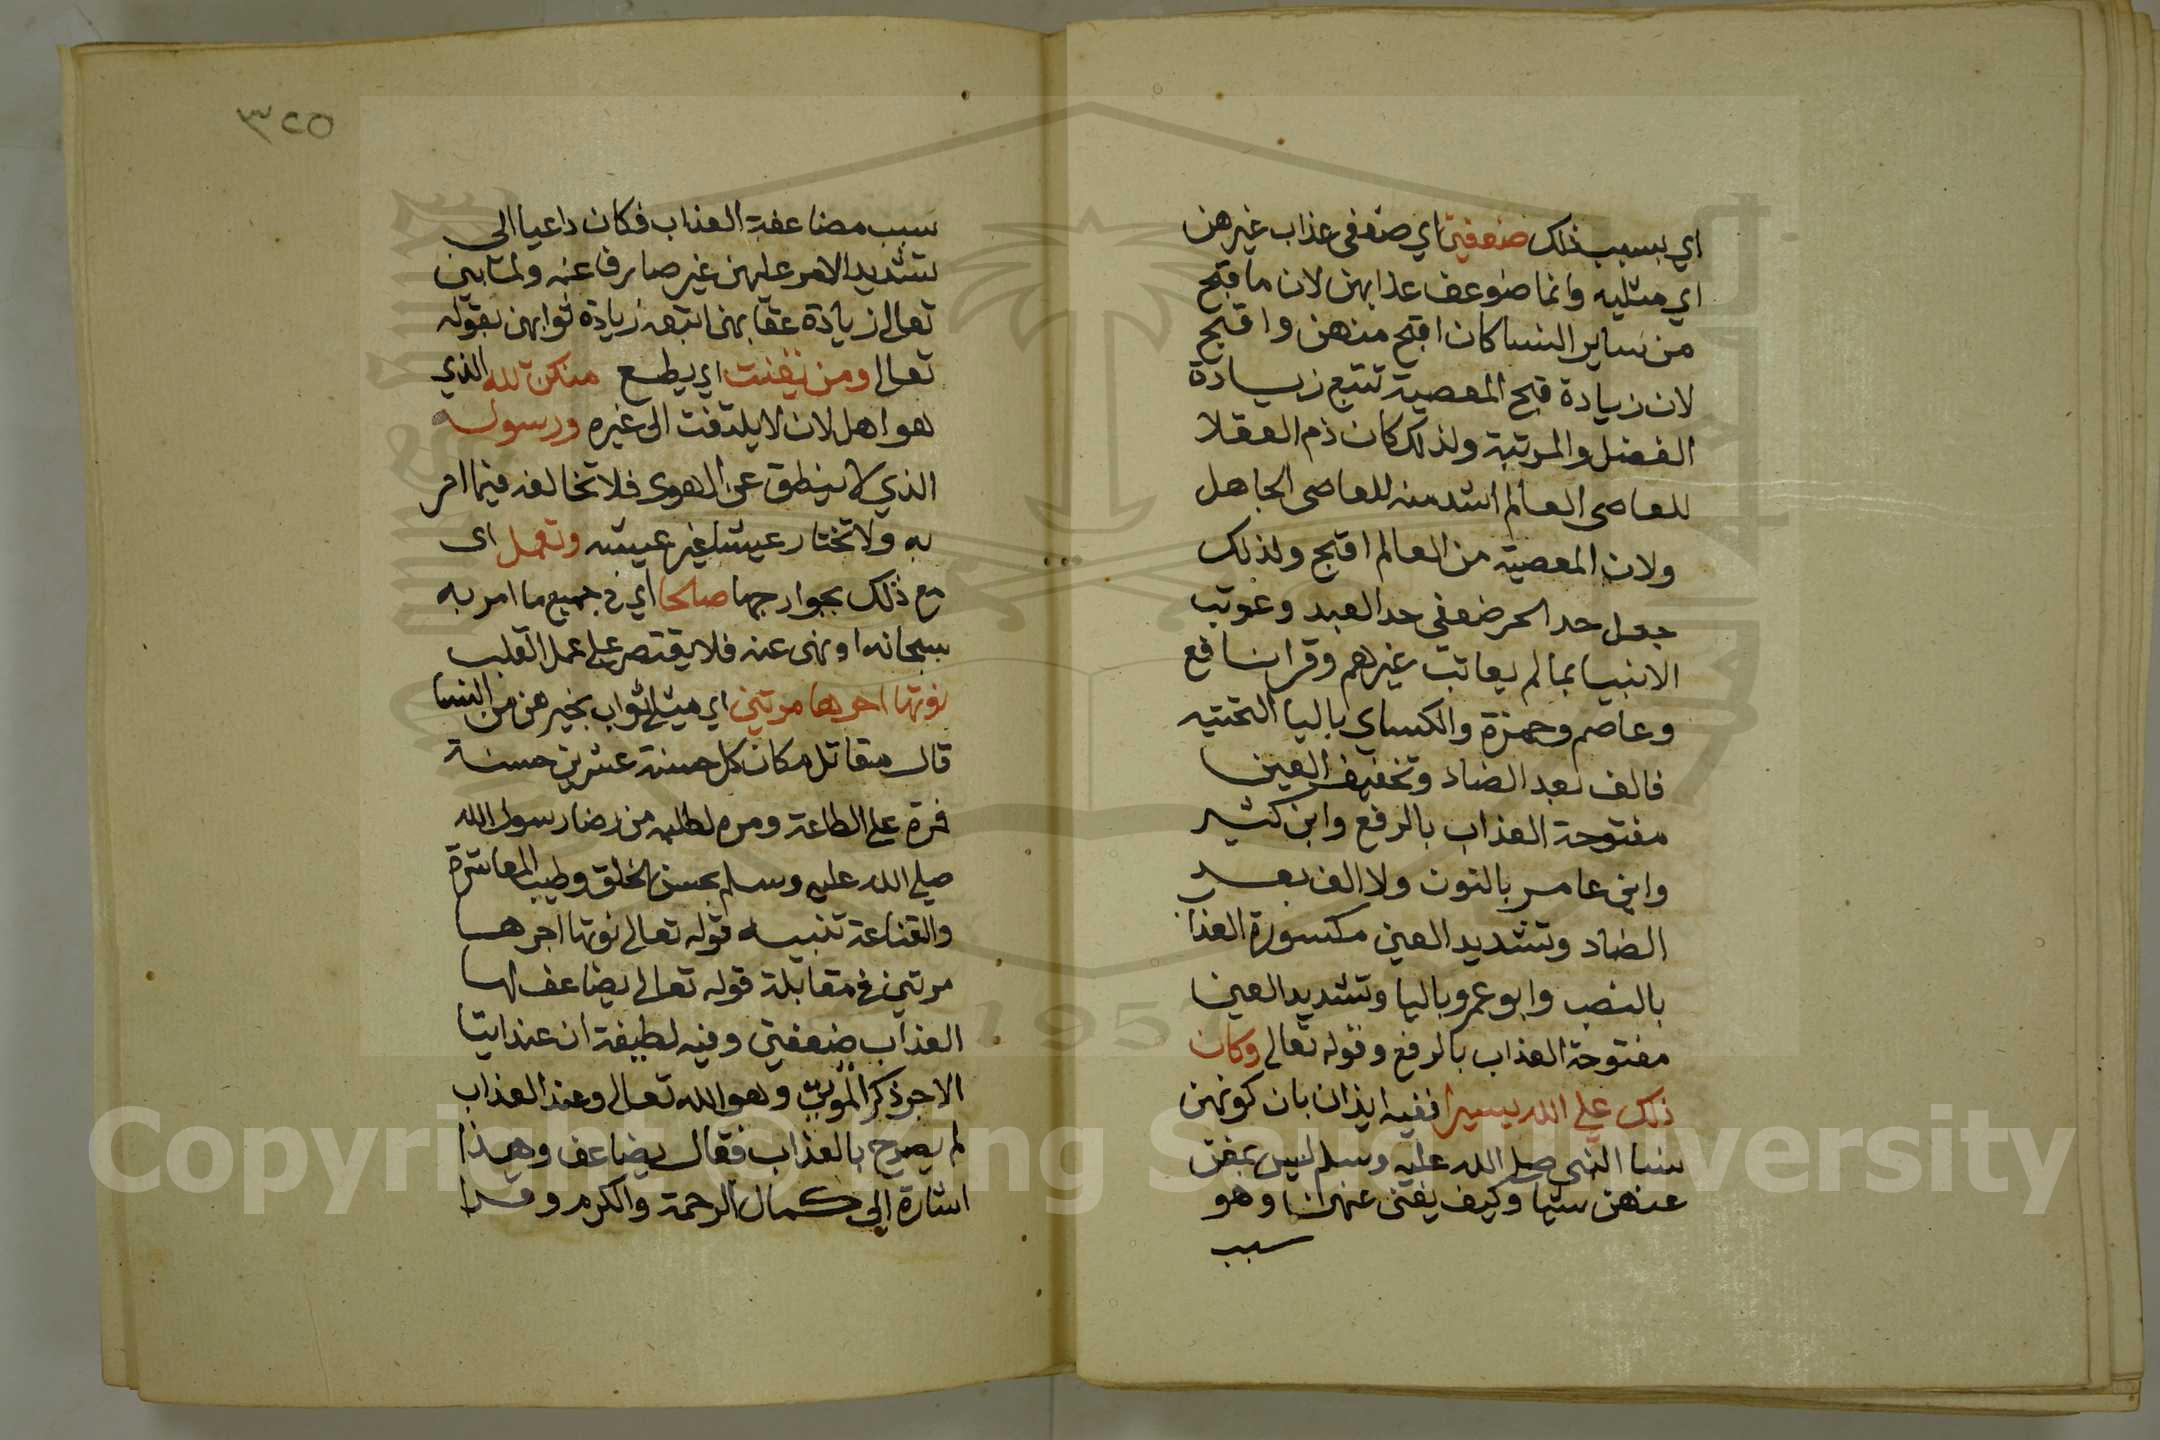 اي بسبب ذلك ضعفين اي ضعفى عذاب غيرهن
اي مثليه وانما ضوعف عذابهن لان ما قبح
من ساير النسا كان اقبح منهن واقبح
لان زيادة قبح المعصية تتبع زيادة
الفضل والمرتبة ولذلك كان ذم العقلا
للعاصى العالم اشد منه للعاصى الجاهل
ولان المعصية من العالم اقبح ولذلك
جعل حد الحر ضعفي حد العبد وعوتب
الانبيا بما لم يعاتب غيرهم وقرا نافع
وعاصم وحمزة والكساي باليا التحتيه
فالف بعد الضاد وتخفيف العين
مفتوحة العذاب بالرفع وابن كثير
وابن عامر بالنون ولا الف بعد
الضاد وتشديد العين مكسورة العذاب
بالنصب وابو عمرو باليا وتشديد العين
مفتوحة العذاب بالرفع وقوله تعالى وكان
ذلك على الله يسيرا ففيه ايذان بان كونهن
نسا النبى صلى الله عليه وسلم ليس بمغن
عنهن شيا وكيف يغنى عنهن وهو
سبب
٣٢٥
سبب مضاعفة العذاب فكان داعيا الى
تشديد الامر عليهن غير صارف عنه ولما بين
تعالى زيادة عقابهن اتبعه زيادة ثوابهن بقوله
تعالى ومن يقنت اي يطع منكن لله الذي
هو اهل لان لا يلتفت الى غيره ورسوله
الذي لا ينطق عن الهوى فلا تخالفه فيما امر
به ولا تختار عيشا غير عيشه وتعمل اى
مع ذلك بجوارحها صالحا اي في جميع ما امر به
سبحانه او نهى عنه فلا يقتصر على عمل القلب
نوتها اجرها مرتين اي مثلي ثواب غيرهن من النسا
قال مقاتل مكان كل حسنة عشرين حسنة
فمرة على الطاعة ومره لطلبهن رضا رسول الله
صلى الله عليه وسلم بحسن الخلق وطيب المعاشرة
والقناعة تنبيه قوله تعالى نوتها اجرها
مرتين في مقابلة قوله تعالى يضاعف لها
العذاب ضعفين وفيه لطيفة ان عند ايتا
الاجر ذكر الموتى وهو الله تعالى وعند العذاب
لم يصرح بالعذاب فقال يضاعف وهذا
اشارة الى كمال الرحمة والكرم وقرا
1957
Copyright © King Saud University